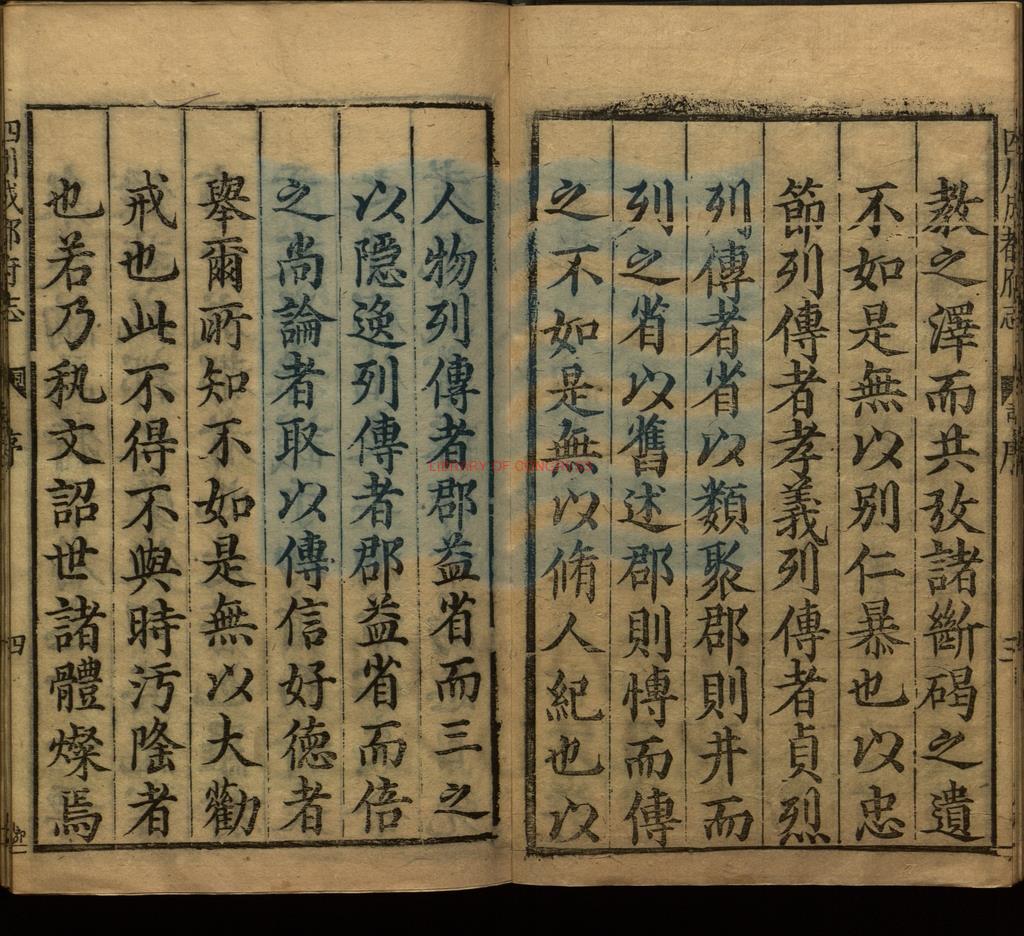 教之澤而共攷諸斷碣之遺
不如是無以別仁暴也以忠
節列傳者孝義列傳者貞烈
列傳者省以類聚郡則井而
列之省以舊述郡則慱而傳
之不如是無以脩人紀也以
人物列傳者郡益省而三之
以隱逸列傳者郡益省而倍
之尚論者取以傳信好德者
舉爾所知不如是無以大勸
戒也此不得不與時汚隆者
也若乃秇文詔世諸體燦焉
四川成都府志
序
三
四川成都府志
序
四
LIBRARY OF CONGRESS